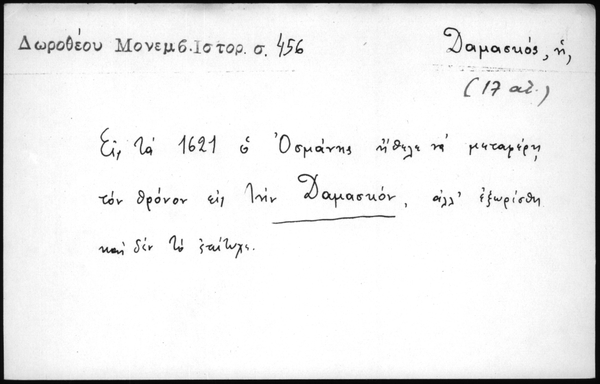 Δωροθέου Μονεμβ. Ιστορ. σ. 456
Δαμασκός, ἡ,
(17 αἰ.)
Εἰς τὰ 1621 ὁ Ὀσμάνης ἤθελε νὰ μεταφέρῃ
τὸν θρόνον εἰς τὴν Δαμασκόν, ἀλλ' ἐξωρίσθη
καὶ δὲν τὸ ἐπίτυχε.